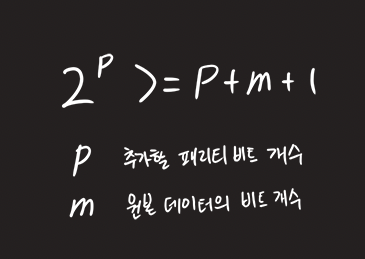 2^p >= p+m+1
p 추가할 패리티 비트 개수
m 원본 데이터의 비트 개수